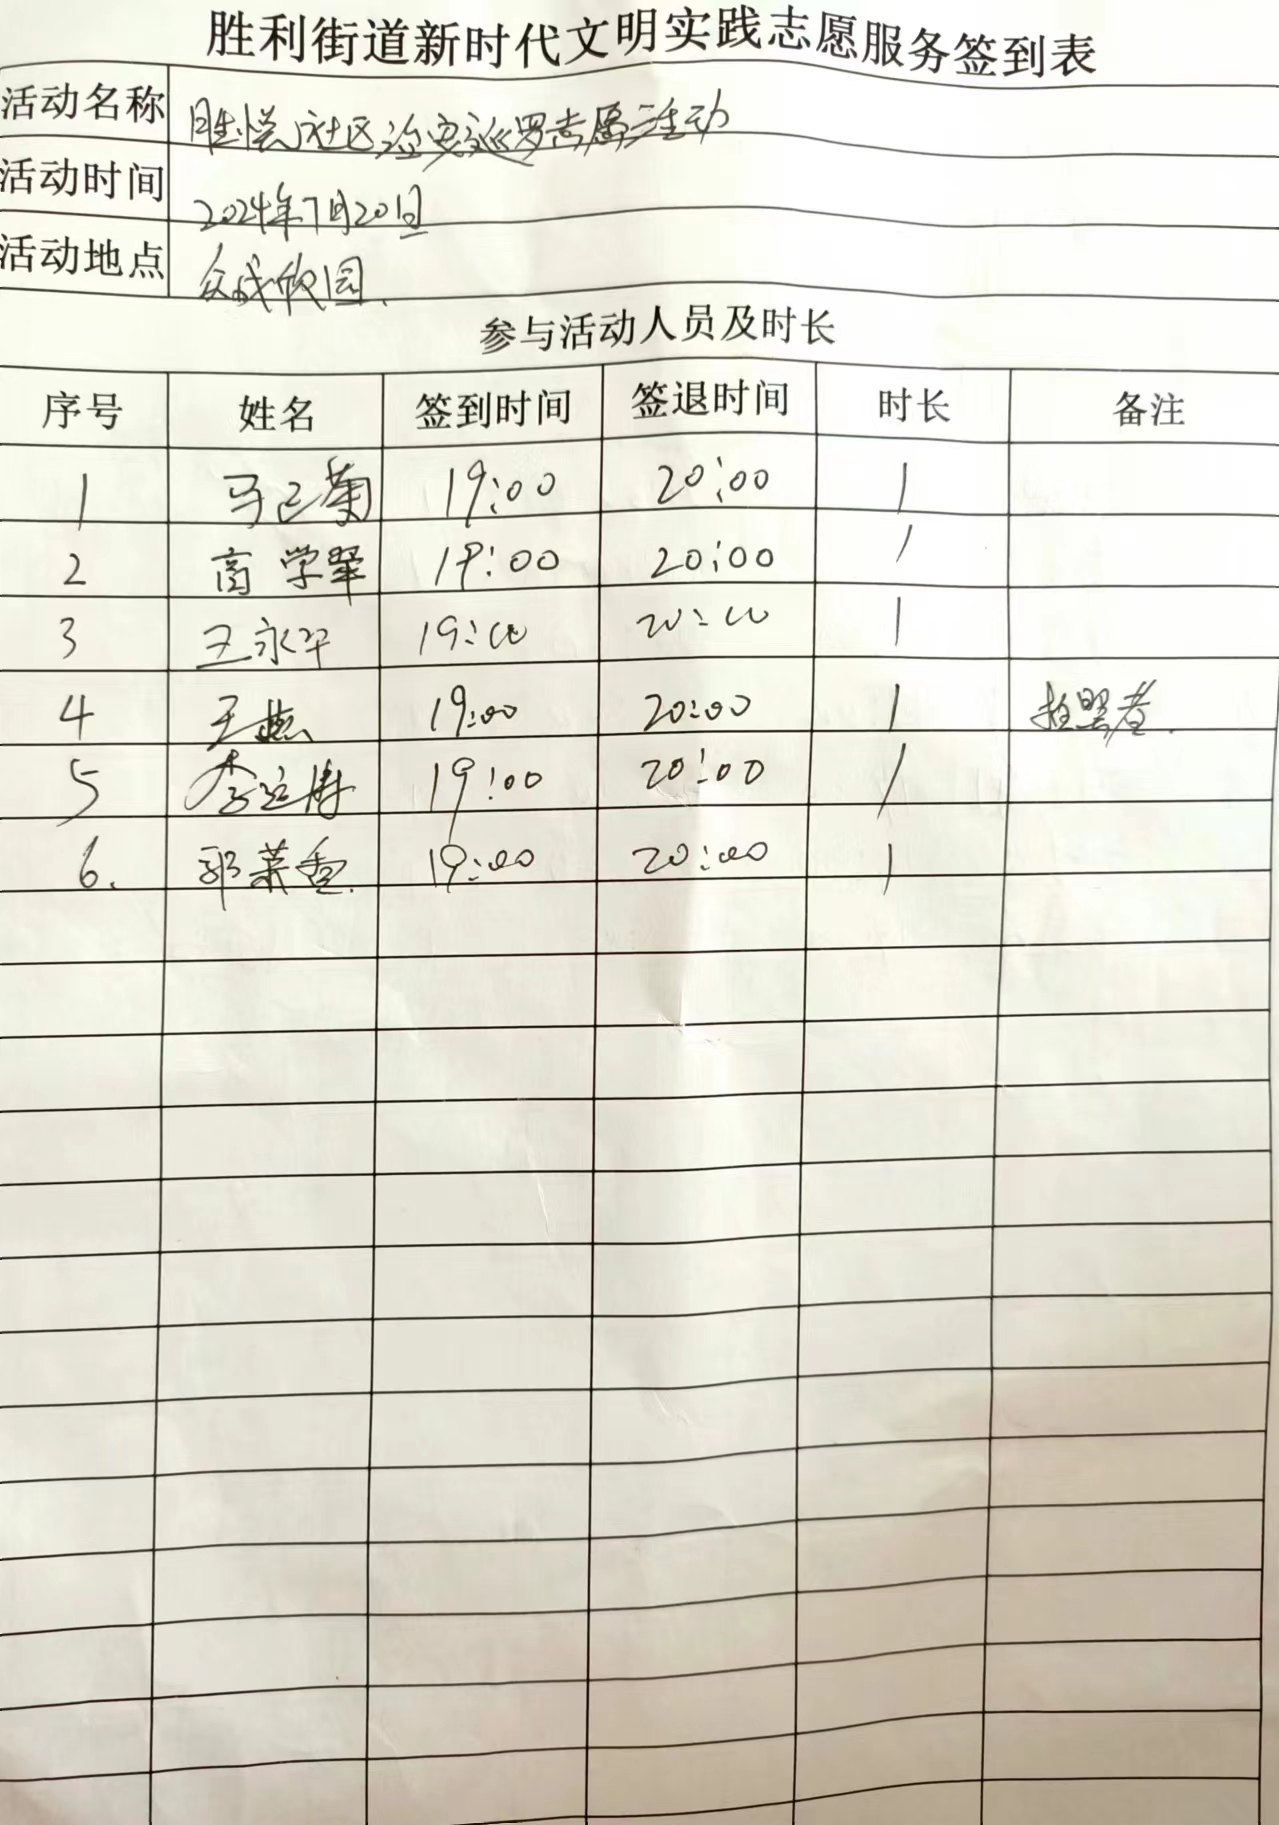 胜利街道新时代文明实践志愿服务签到表
活动名称 胜悦社区治安巡罗志愿活动
活动时间 2024年7月20日
活动地点 众成欣园
参与活动人员及时长
序号 姓名 签到时间 签退时间 时长 备注
1 马巧菊 19:00 20:00 1
2 商学翠 19:00 20:00 1
3 王永平 19:00 20:00 1
4 王燕 19:00 20:00 1
5 李运涛 19:00 20:00 1
6. 郭荣香 19:00 20:00 1